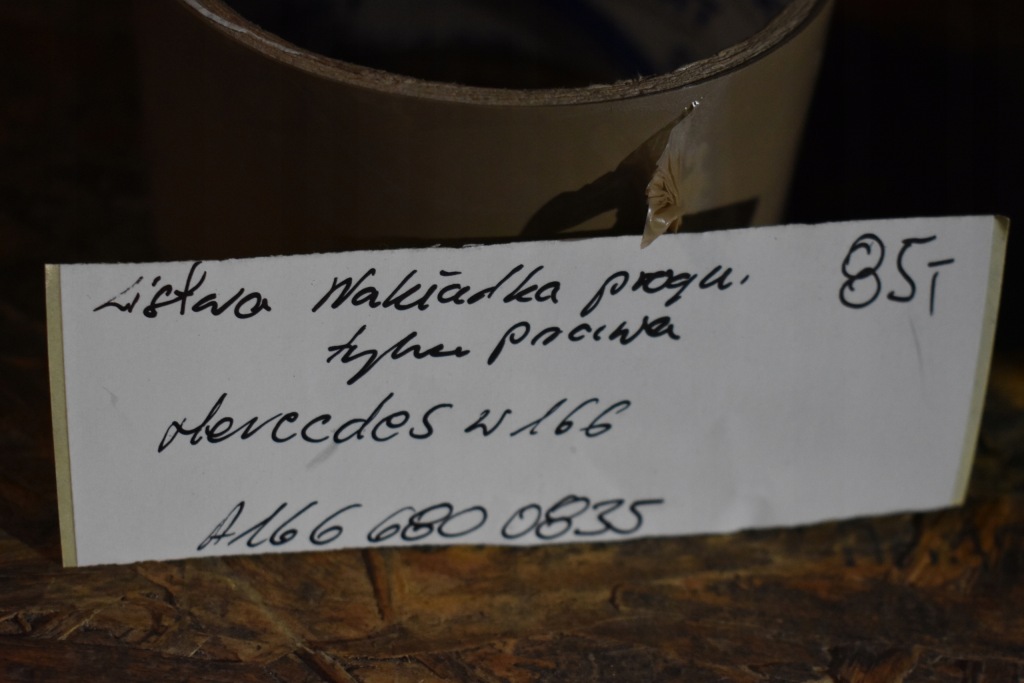 Listwa Nakładka progu. 85T
tylna prawa
Mercedes W166
A166 680 0835